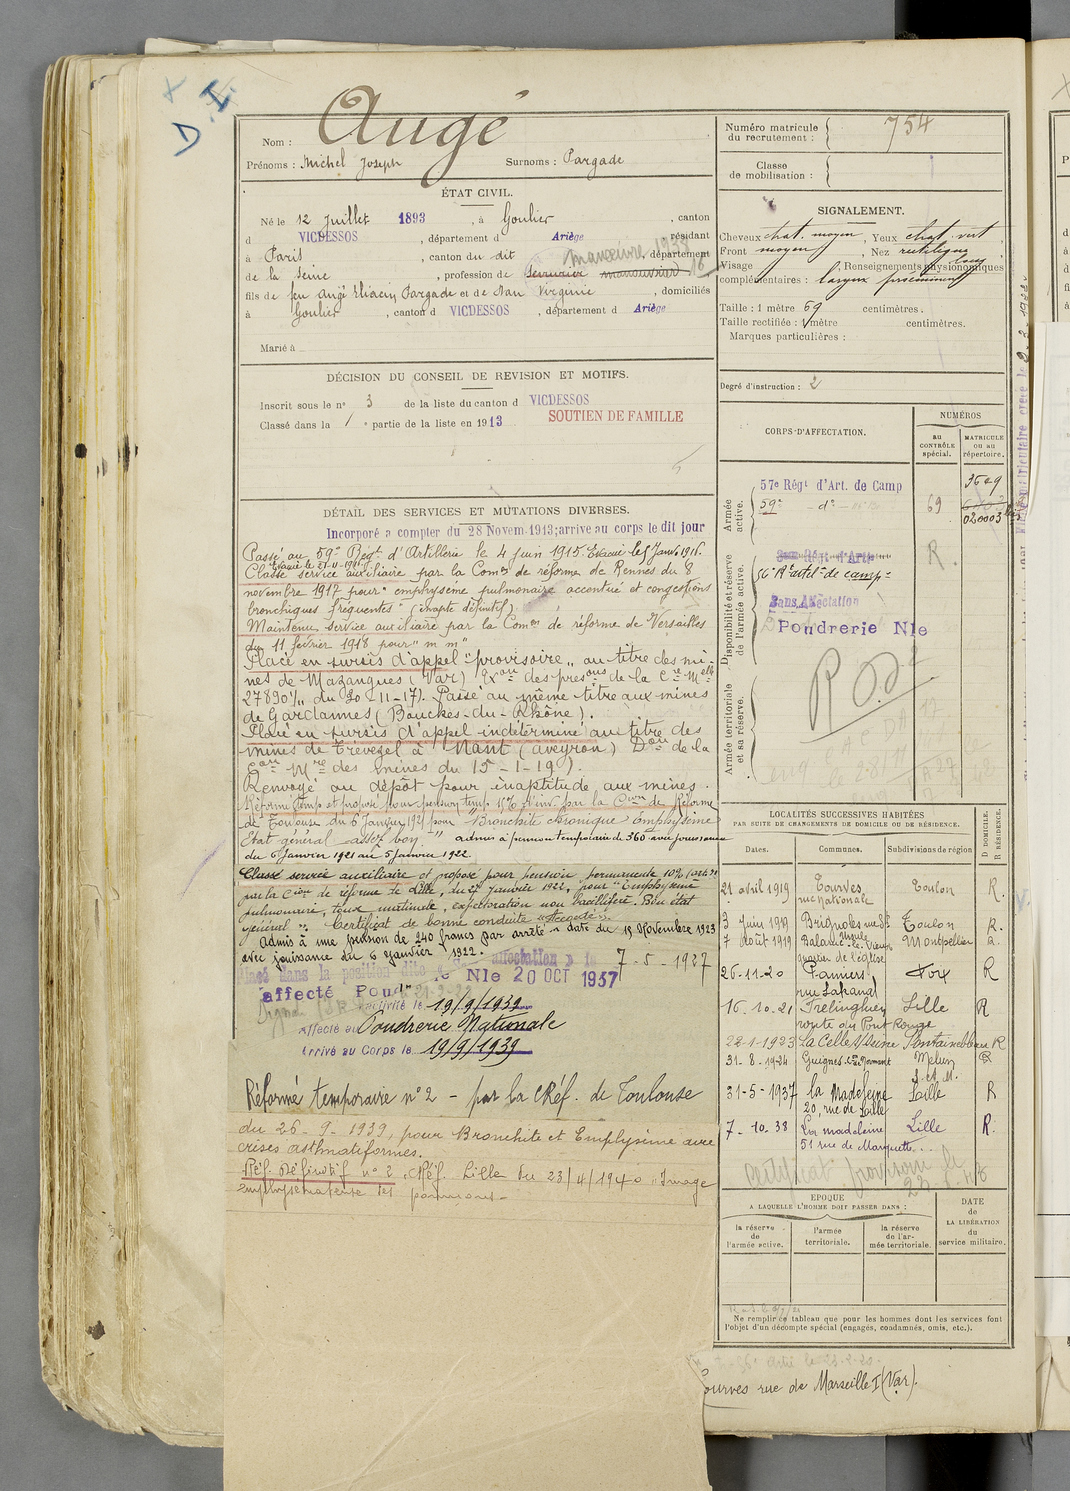 D. I.
Nom : Augé
Prénoms : Michel Joseph Surnoms : Pargade
ÉTAT CIVIL.
Né le 12 Juillet 1893, à Goulier, canton
d VICDESSOS, département d Ariège résidant
à Paris, canton du dit département
manœuvre 1938
de la Seine, profession de serrurier manouvrier 16
fils de feu Augé Eliacin Pargade et de Nan Virginie, domiciliés
à Goulier, canton d VICDESSOS, département d Ariège
Marié à
DÉCISION DU CONSEIL DE REVISION ET MOTIFS.
Inscrit sous le n° 3 de la liste du canton d VICDESSOS
Classé dans la 1 e partie de la liste en 1913 SOUTIEN DE FAMILLE
DÉTAIL DES SERVICES ET MUTATIONS DIVERSES.
Incorporé a compter du 28 Novem. 1913; arrive au corps le dit jour
Passé au 59e Regt d'Artillerie le 4 juin 1915. Evacué le 5 Janv. 1916.
Classé service auxiliaire par la Comon de réforme de Rennes du 8
novembre 1917 pour "emphysème pulmonaire accentué et congestions
bronchiques fréquentes" (inapte définitif).
Maintenu service auxiliaire par la Comon de réforme de Versailles
du 11 février 1918 pour "m m"
Placé en sursis d'appel "provisoire" au titre des mi-
nes de Mazaugues (Var)
27890 % du 20-11-17). Passé au même titre aux mines
de Gardannes (Bouches-du-Rhône).
Placé en sursis d'appel indéterminé au titre des
mines de Trévezel à Nant (Aveyron) Don de la
des mines du 15-1-19).
Renvoyé au dépôt pour inaptitude aux mines.
Réformé temp et proposé pour pension temp 15% d'inv. par la Cion de Réforme
de Toulouse du 6 Janvier 1921 pour "Bronchite chronique emphysème
Etat général assez bon" admis à pension temporaire de 360 avec jouissance
du 6 Janvier 1921 au 5 Janvier 1922.
Classé service auxiliaire et proposé pour pension permanente 10%
par la Cion de réforme de Lille, du 27 janvier 1922, pour "Emphysème
pulmonaire, toux matinale, expectoration non bacillifère. Bon état
général". Certificat de bonne conduite "Accordé".
Admis à une pension de 240 francs par arrêté en date du 19 Novembre 1923
avec jouissance du 6 Janvier 1922.
Placé dans la position dite affectation 7-5-1937
affecté Poudie Nle 20 OCT 1937
activité le 19/9/1939
Affecté au Poudrerie Nationale
Arrivé au Corps le 19/9/1939
Réformé temporaire n° 2 - par la C Réf. de Toulouse
du 26-9-1939, pour Bronchite et Emphysème avec
crises asthmatiformes.
Réf. Définitif n° 2 C Réf. Lille du 23/4/1940 "Image
emphysemateuse des poumons.
Numéro matricule du recrutement : 754
Classe de mobilisation :
SIGNALEMENT.
Cheveux chat. moyen, Yeux chat. vert
Front moyen, Nez rectiligne
Visage long Renseignements physionomiques
complémentaires : larynx proéminent
Taille : 1 mètre 69 centimètres.
Taille rectifiée : 1 mètre centimètres.
Marques particulières :
Degré d'instruction : 2
CORPS D'AFFECTATION.
NUMÉROS
au CONTRÔLE spécial.
MATRICULE ou au répertoire.
Armée active.
57e Régt d'Art. de Camp 3609
59e - d° - 69
020003
Disponibilité et réserve de l'armée active.
56e Rt artil. de camp
R.
Sans Affectation
Poudrerie Nle
Armée territoriale et sa réserve.
LOCALITÉS SUCCESSIVES HABITÉES
PAR SUITE DE CHANGEMENTS DE DOMICILE OU DE RÉSIDENCE.
Dates. Communes. Subdivisions de région D DOMICILE. R RÉSIDENCE.
21 avril 1919 Tourves rue Nationale Toulon R.
3 Juin 1919 Brignoles Toulon R.
7 Août 1919 Balaruc-le-Vieux Montpellier R.
quartier de l'église
26-11-20 Pamiers rue Lakanal Foix R
16.10.21 Frelinghien route du Pont Rouge Lille R
22-1-1923 La Celle s/Seine Fontainebleau R
31-8-1924 Guignes Con de Mormant Melun R
S. et M.
31-5-1937 La Madeleine 20, rue de Lille Lille R
7-10.38 La Madeleine Lille R.
51 rue de Marquette
Certificat provisoire
EPOQUE
A LAQUELLE L'HOMME DOIT PASSER DANS :
la réserve de l'armée active.
l'armée territoriale.
la réserve de l'armée territoriale.
DATE de LA LIBÉRATION du service militaire.
Ne remplir ce tableau que pour les hommes dont les services font
l'objet d'un décompte spécial (engagés, condamnés, omis, etc.).
Tourves rue de Marseille I (Var).